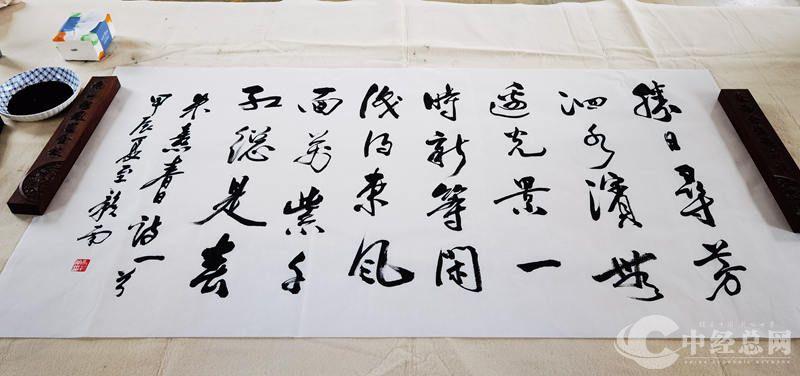 勝日尋芳
泗水濱無
邊光景一
時新等閑
識得東風
面萬紫千
紅總是春
朱熹春日詩一首
甲辰夏至
中经总网